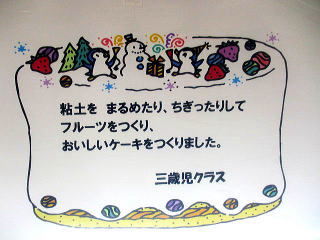 粘土を まるめたり、ちぎったりして
フルーツをつくり、
おいしいケーキをつくりました。
三歳児クラス